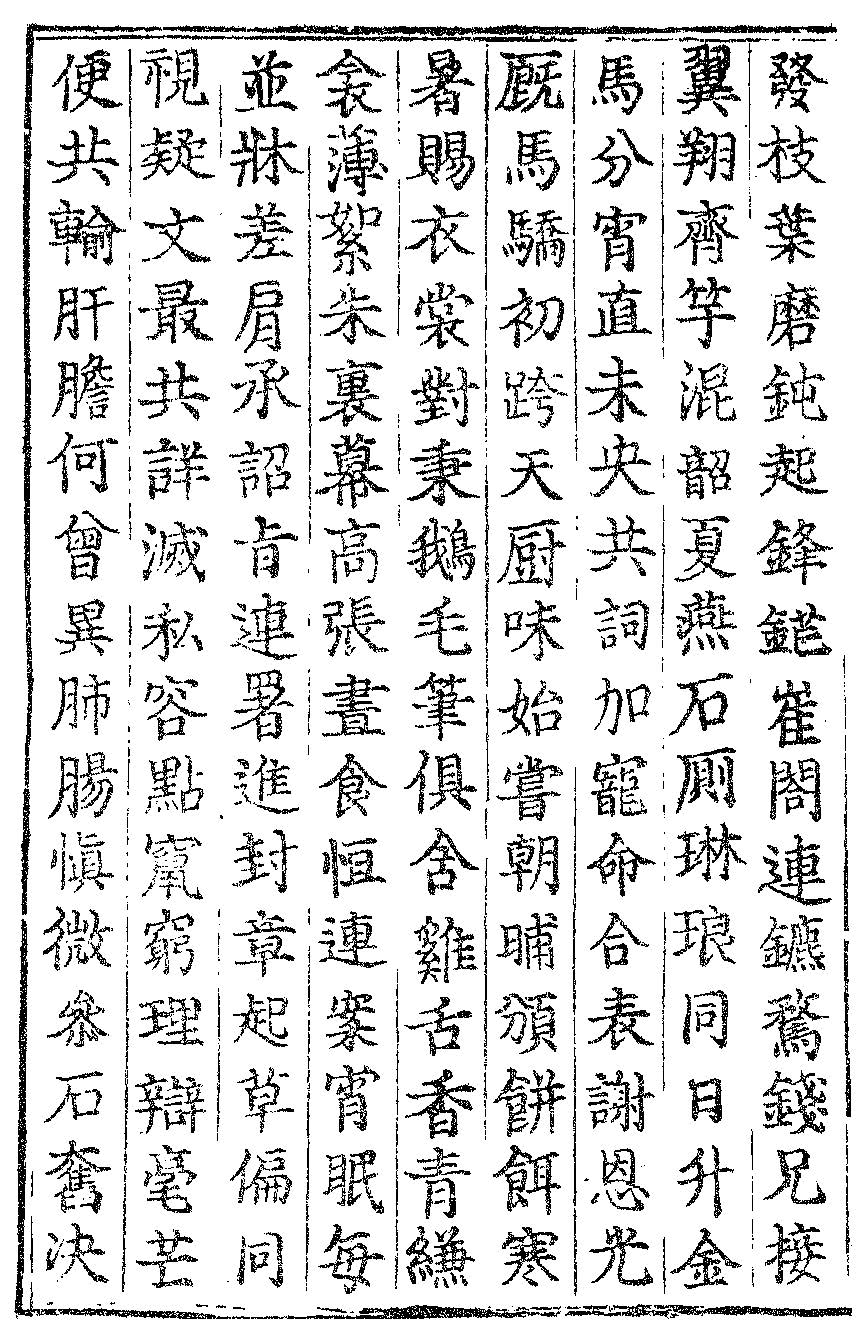 發枝葉磨鈍起鋒鋩崔閣連鑣騖錢兄接
翼翔齊竽混韶夏燕石厠琳琅同日升金
馬分宵直未央共詞加寵命合表謝恩光
厩馬驕初跨天厨味始嘗朝晡頒餅餌寒
暑賜衣裳對秉鵝毛筆俱含雞舌香青縑
衾薄絮朱裏幕高張晝食恒連案宵眠每
並牀差肩承詔旨連署進封章起草偏同
視疑文最共詳滅私容點竄窮理辯毫芒
便共輸肝膽何曾異肺腸愼微參石奮决